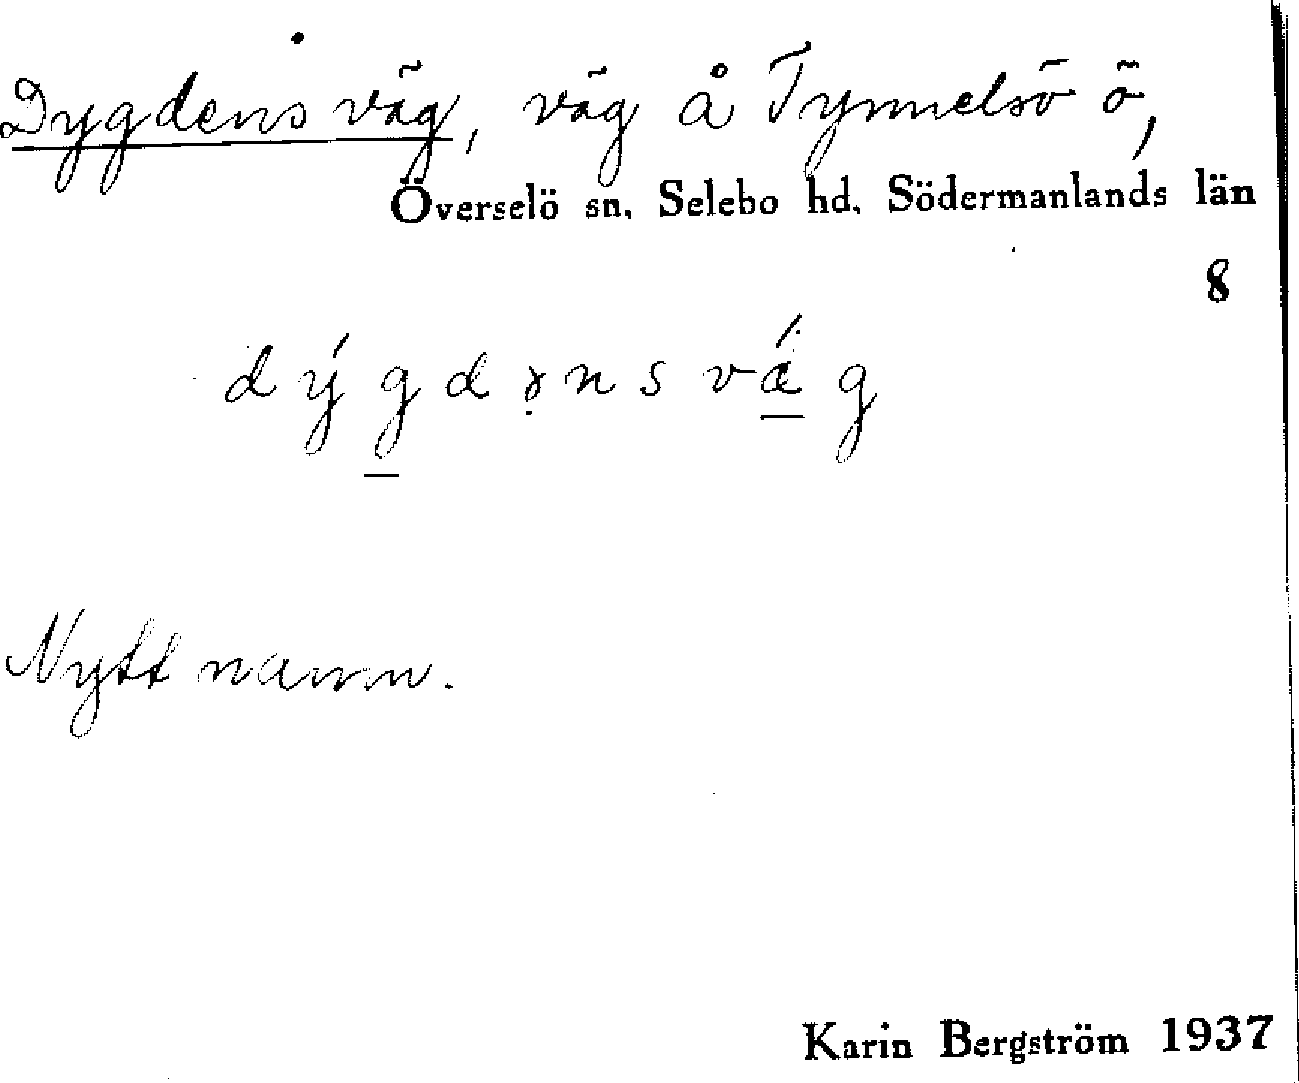 Dygdens väg, väg å Tynnelsö ö,
Överselö sn. Selebo hd. Södermanlands län
8
dý̱gdə̣nsvǽ̱g
Nytt namn.
Karin Bergström 1937